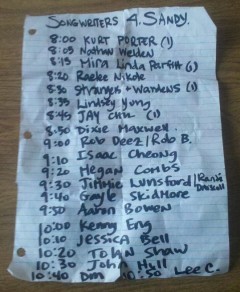 SONGWRITERS 4. SANDY.
8:00 KURT PORTER (1)
8:05 Nathan Welden
8:15 Mira Linda Parfitt (1)
8:20 Raelee Nikole
8:30 Strangers + Wardens (1)
8:35 Lindsey Yung
8:45 JAY (1)
8:50 Dixie Maxwell
9:00 Rob Deez / Rob B.
9:10 Isaac Cheong
9:20 Megan Combs
9:30 Jimmie Lunsford / Driscoll
9:40 Gayle Skidmore
9:50 Aaron Bowen
10:00 Kenny Eng
10:10 Jessica Bell
10:20 Tolan Shaw
10:30 John Hull
10:40 10:50 Lee C.